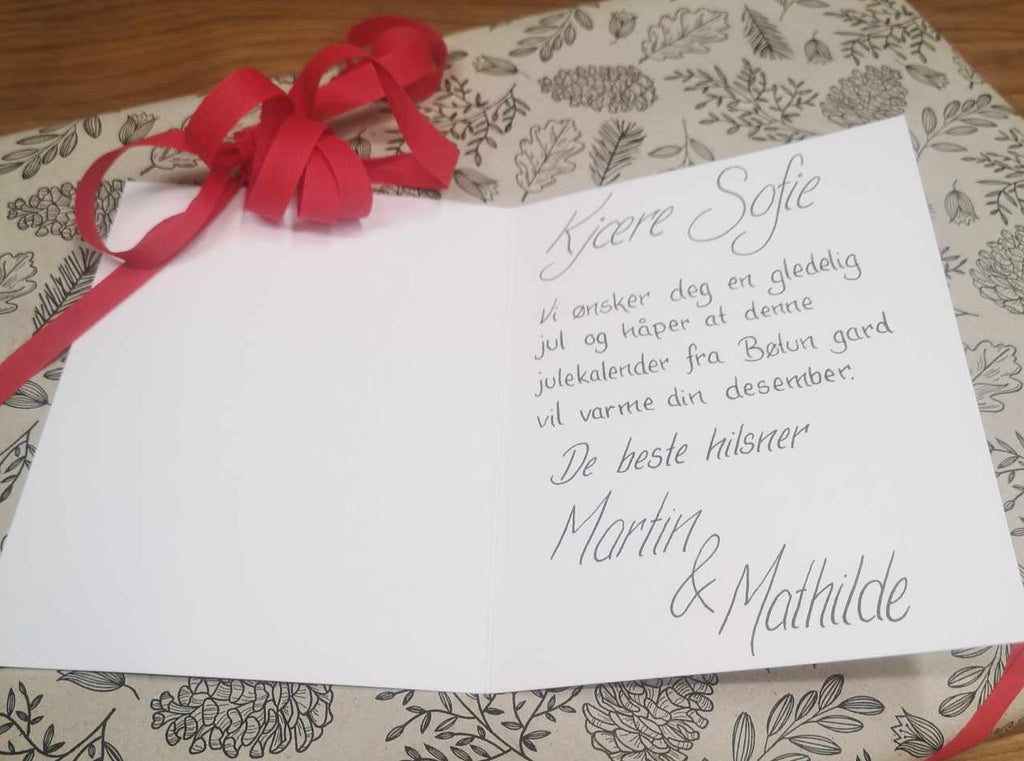 Kjære Sofie
Vi ønsker deg en gledelig
jul og håper at denne
julekalender fra Bølun gard
vil varme din desember.
De beste hilsner
Martin
& Mathilde